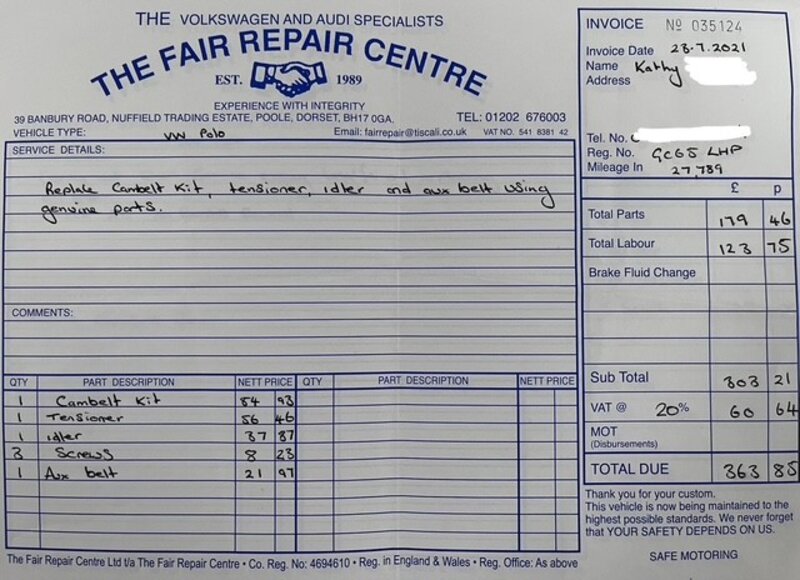 THE VOLKSWAGEN AND AUDI SPECIALISTS
THE FAIR REPAIR CENTRE
EST. 1989
EXPERIENCE WITH INTEGRITY
39 BANBURY ROAD, NUFFIELD TRADING ESTATE, POOLE, DORSET, BH17 0GA. TEL: 01202 676003
VEHICLE TYPE: VW Polo Email: fairrepair@tiscali.co.uk VAT NO. 541 8381 42
INVOICE Nº 035124
Invoice Date 28.7.2021
Name Kathy
Address
Tel. No.
Reg. No. GC65 LHP
Mileage In 27,789
SERVICE DETAILS:
Replace Cambelt Kit, tensioner, idler and aux belt using
genuine parts.
COMMENTS:
£ p
Total Parts 179 46
Total Labour 123 75
Brake Fluid Change
Sub Total 303 21
VAT @ 20% 60 64
MOT
(Disbursements)
TOTAL DUE 363 85
QTY PART DESCRIPTION NETT PRICE QTY PART DESCRIPTION NETT PRICE
1 Cambelt Kit 54 93
1 Tensioner 56 46
1 idler 37 87
3 Screws 8 23
1 Aux belt 21 97
Thank you for your custom.
This vehicle is now being maintained to the
highest possible standards. We never forget
that YOUR SAFETY DEPENDS ON US.
SAFE MOTORING
The Fair Repair Centre Ltd t/a The Fair Repair Centre • Co. Reg. No: 4694610 • Reg. in England & Wales • Reg. Office: As above